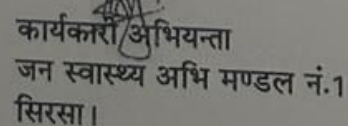 कार्यकारी अभियन्ता
जन स्वास्थ्य अभि मण्डल नं.1
सिरसा।